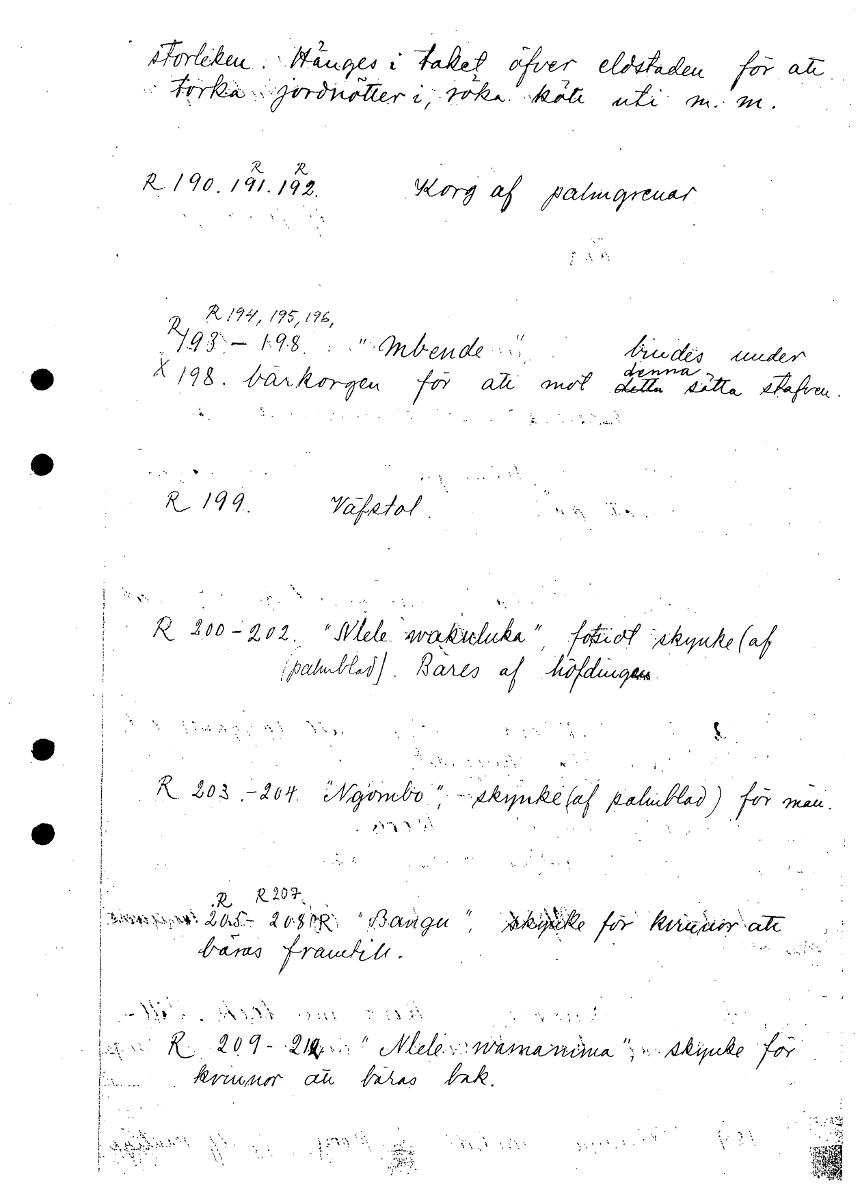 storleken. Hänges i taket öfver eldstaden för att
torka jordnötter i, röka kött uti m. m.
R 190. R 191. R 192. Korg af palmgrenar
R 194, 195, 196,
R 193 – 198. "Mbende" brudes under
X 198. bärkorgen för att mot detta denna sätta stafven.
R 199. Väfstol.
R 200–202. "Nlele wakuluka", fotsidt skynke (af
(palmblad). Bäres af höfdingen
R 203.–204. "Ngombo", – skynke (af palmblad) för män.
R R 207.
205– 208 R "Bangu", skynke för kvinnor att
bäras framtill.
R 209– 212 "Nlele wamanima", skynke för
kvinnor att bäras bak.